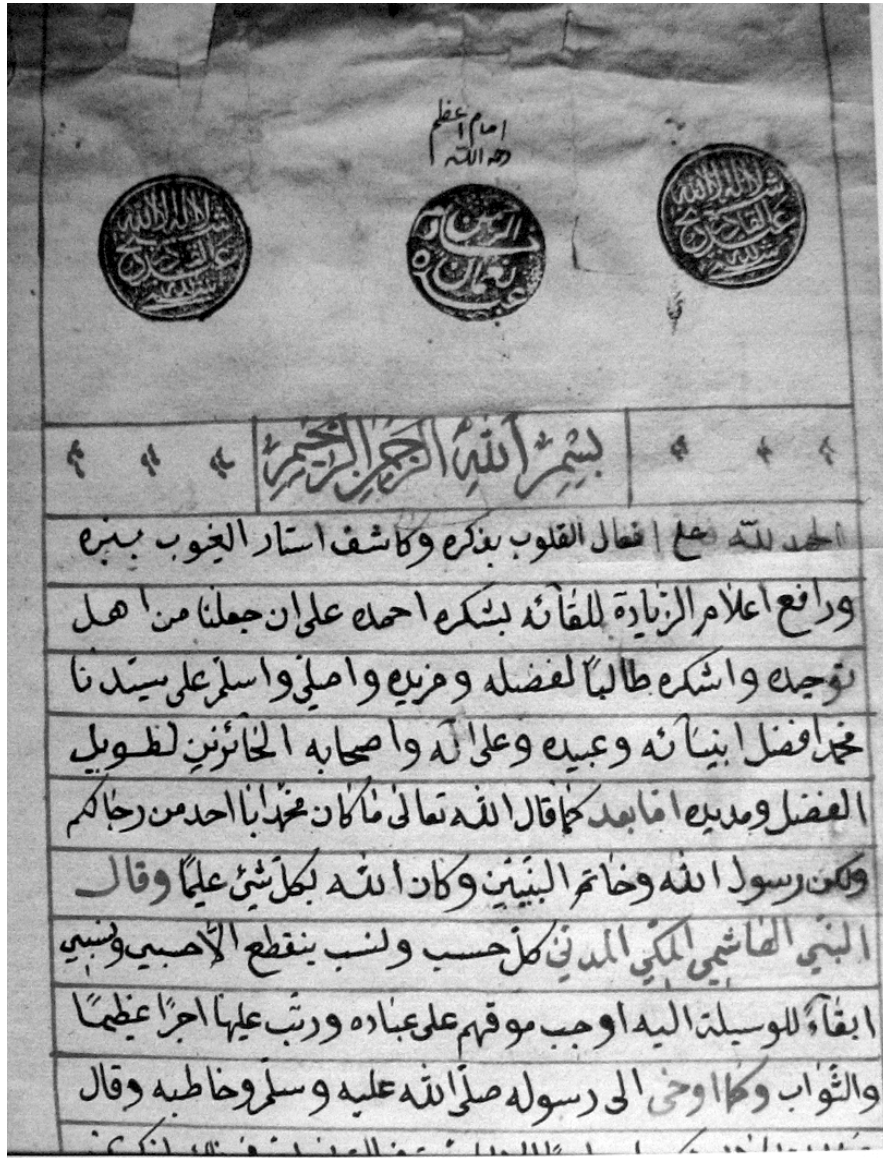 امام اعظم
رحمه الله
لا اله الا الله
عبد القادر
نعمان
لا اله الا الله
عبد القادر
بسم الله الرحمن الرحيم
الحمد لله اقفال القلوب بذكره وكاشف استار الغيوب ببره
ورافع اعلام الزيادة للقائه بشكره احمده على ان جعلنا من اهل
توحيده واشكره طالبًا لفضله ومزيده واصلي واسلم على سيدنا
محمد افضل انبيائه وعبيده وعلى اله واصحابه الحائزين لطويل
الفضل ومديده اما بعد كما قال الله تعالى ما كان محمد ابا احد من رجالكم
ولكن رسول الله وخاتم النبيين وكان الله بكل شيئ عليمًا وقال
النبي الهاشمي المكي المدني كل حسب ونسب ينقطع الا حسبي ونسبي
ابقآءً للوسيلة اليه اوجب موقهم على عباده ورتب عليها اجرًا عظيمًا
والثواب وكما اوحى الى رسوله صلى الله عليه وسلم وخاطبه وقال